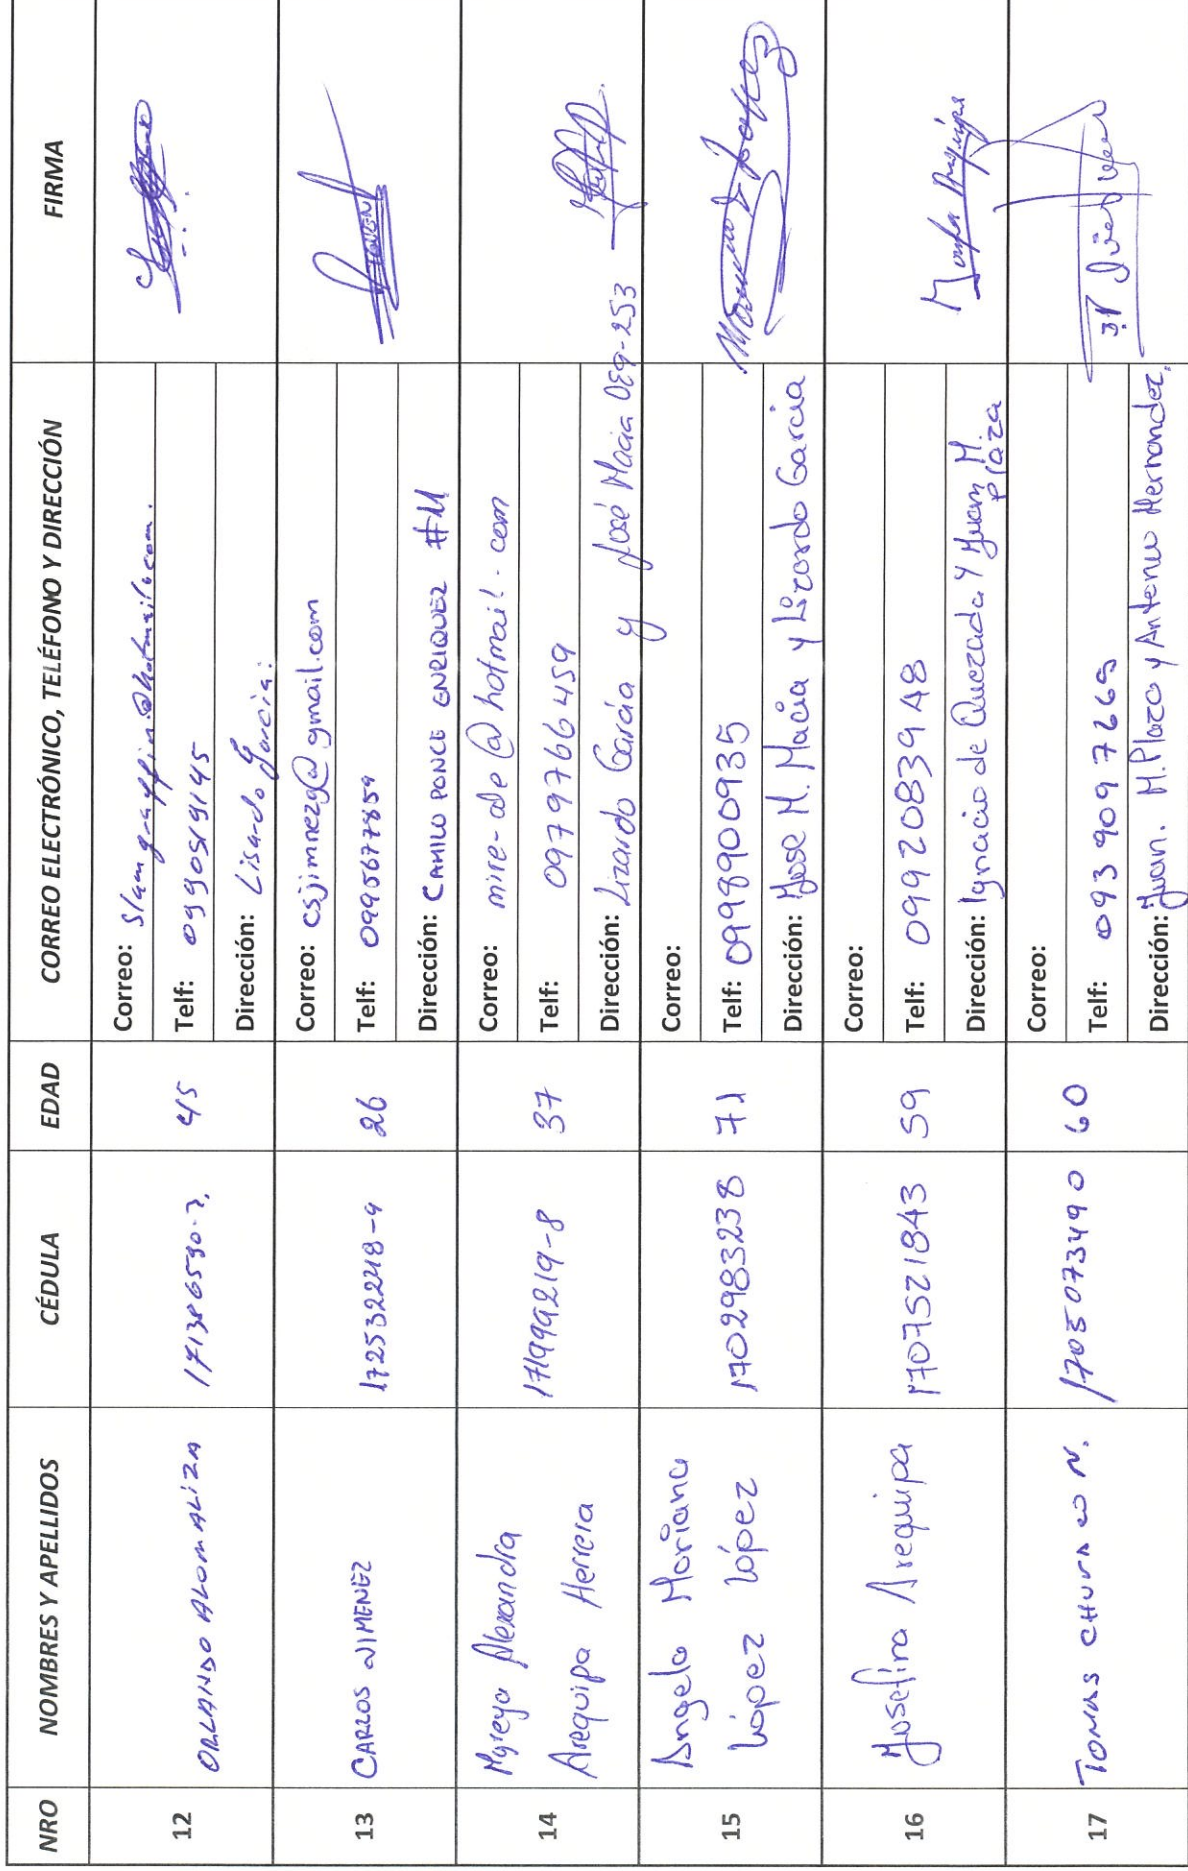 NRO NOMBRES Y APELLIDOS CÉDULA EDAD CORREO ELECTRÓNICO, TELÉFONO Y DIRECCIÓN FIRMA
12 ORLANDO ALOMALIZA 171386590-7. 45
Correo:
Telf: 0990519145
Dirección: Lisardo Garcia.
13 CARLOS JIMENEZ 172532248-9 26
Correo: csjimnezg@gmail.com
Telf: 0995677859
Dirección: CAMILO PONCE ENRIQUEZ #11
JIMENEZ
14 Myreya Alexandra
Arequipa Herrera 171999219-8 37
Correo: mire-ale@hotmail.com
Telf: 0979766459
Dirección: Lizardo García y José Macia OE9-253
15 Angela Mariana
López López 1702983238 71
Correo:
Telf: 0998900935
Dirección: Jose M. Macia y Lizardo Garcia
16 Josefina Arequipa 1707521843 59
Correo:
Telf: 0992083948
Dirección: Ignacio de Quezada Y Juan M.
Plaza
Josefa Arequipa
17 TOMAS CHURACO N. 1705073490 60
Correo:
Telf: 0939097265
Dirección: Juan. M. Plaza y Antonio Hernandez,